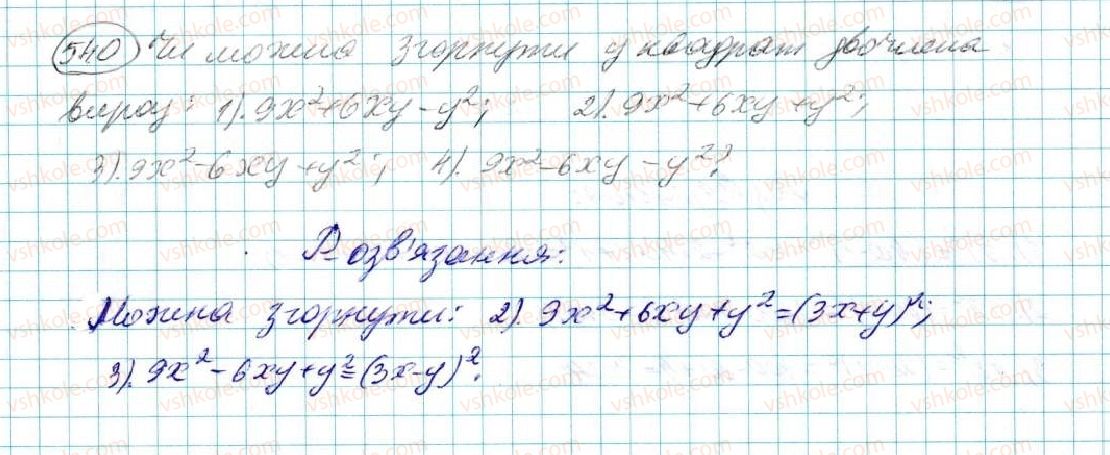 540 Чи можна згорнути у квадрат двочлена
вираз: 1). 9x²+6xy-y²; 2). 9x²+6xy+y²;
3). 9x²-6xy+y²; 4). 9x²-6xy-y²?
Розв'язання:
Можна згорнути: 2). 9x²+6xy+y²=(3x+y)²;
3). 9x²-6xy+y²=(3x-y)².